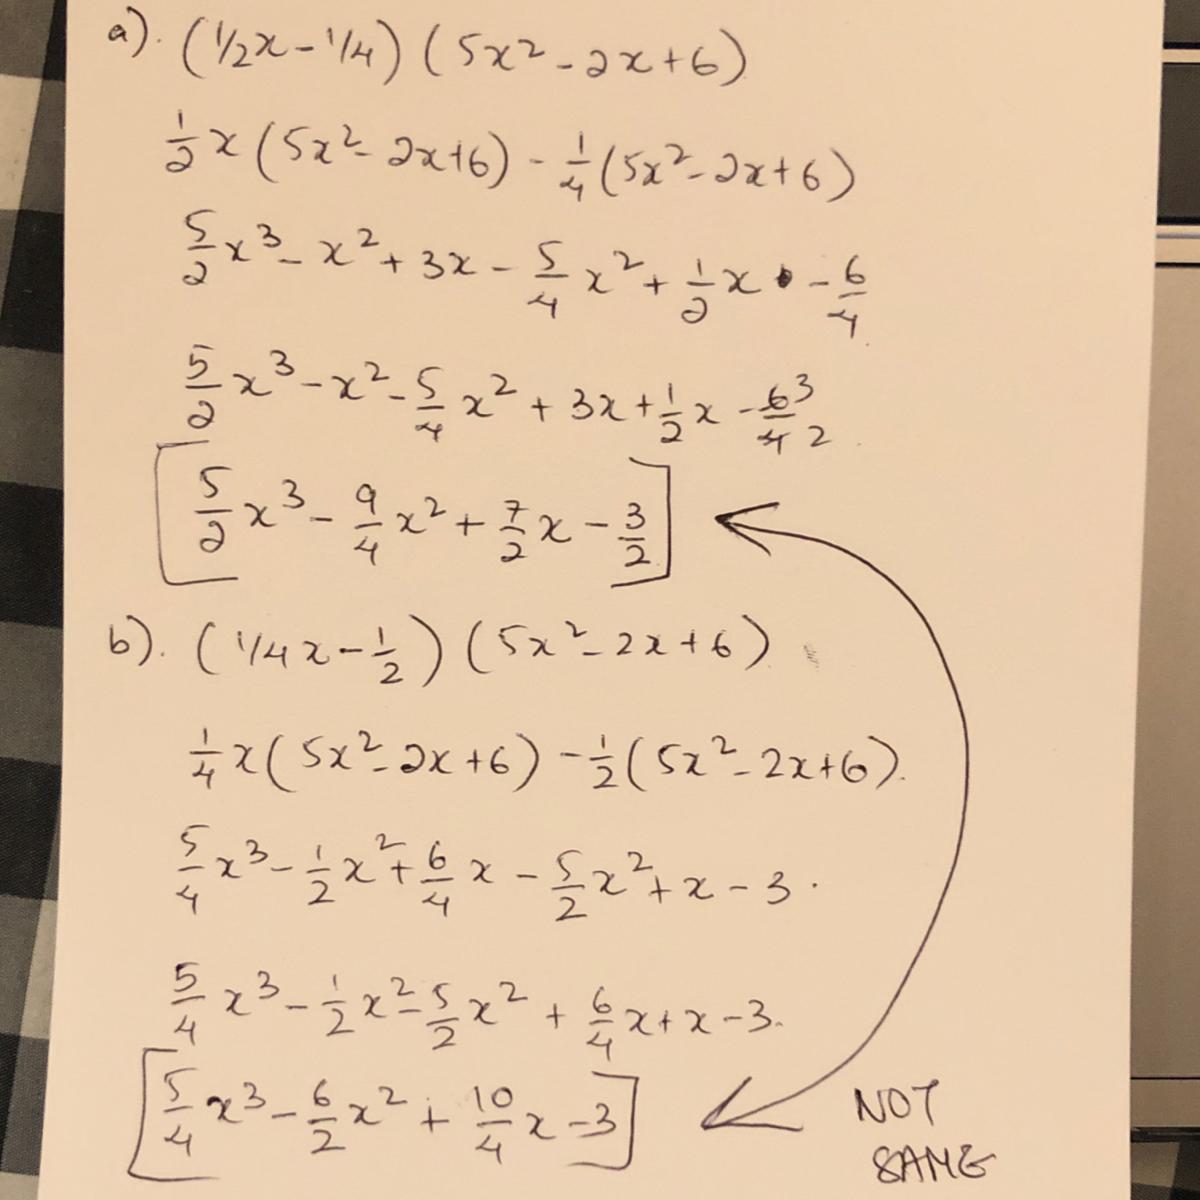 a). (1/2x - 1/4) (5x² - 2x + 6)
1/2 x (5x² - 2x + 6) - 1/4 (5x² - 2x + 6)
5/2 x³ - x² + 3x - 5/4 x² + 1/2 x - 6/4
5/2 x³ - x² - 5/4 x² + 3x + 1/2 x - 6/4 3/2
[5/2 x³ - 9/4 x² + 7/2 x - 3/2]
b). (1/4 x - 1/2) (5x² - 2x + 6)
1/4 x (5x² - 2x + 6) - 1/2 (5x² - 2x + 6).
5/4 x³ - 1/2 x² + 6/4 x - 5/2 x² + x - 3.
5/4 x³ - 1/2 x² - 5/2 x² + 6/4 x + x - 3.
[5/4 x³ - 6/2 x² + 10/4 x - 3]
NOT
SAME